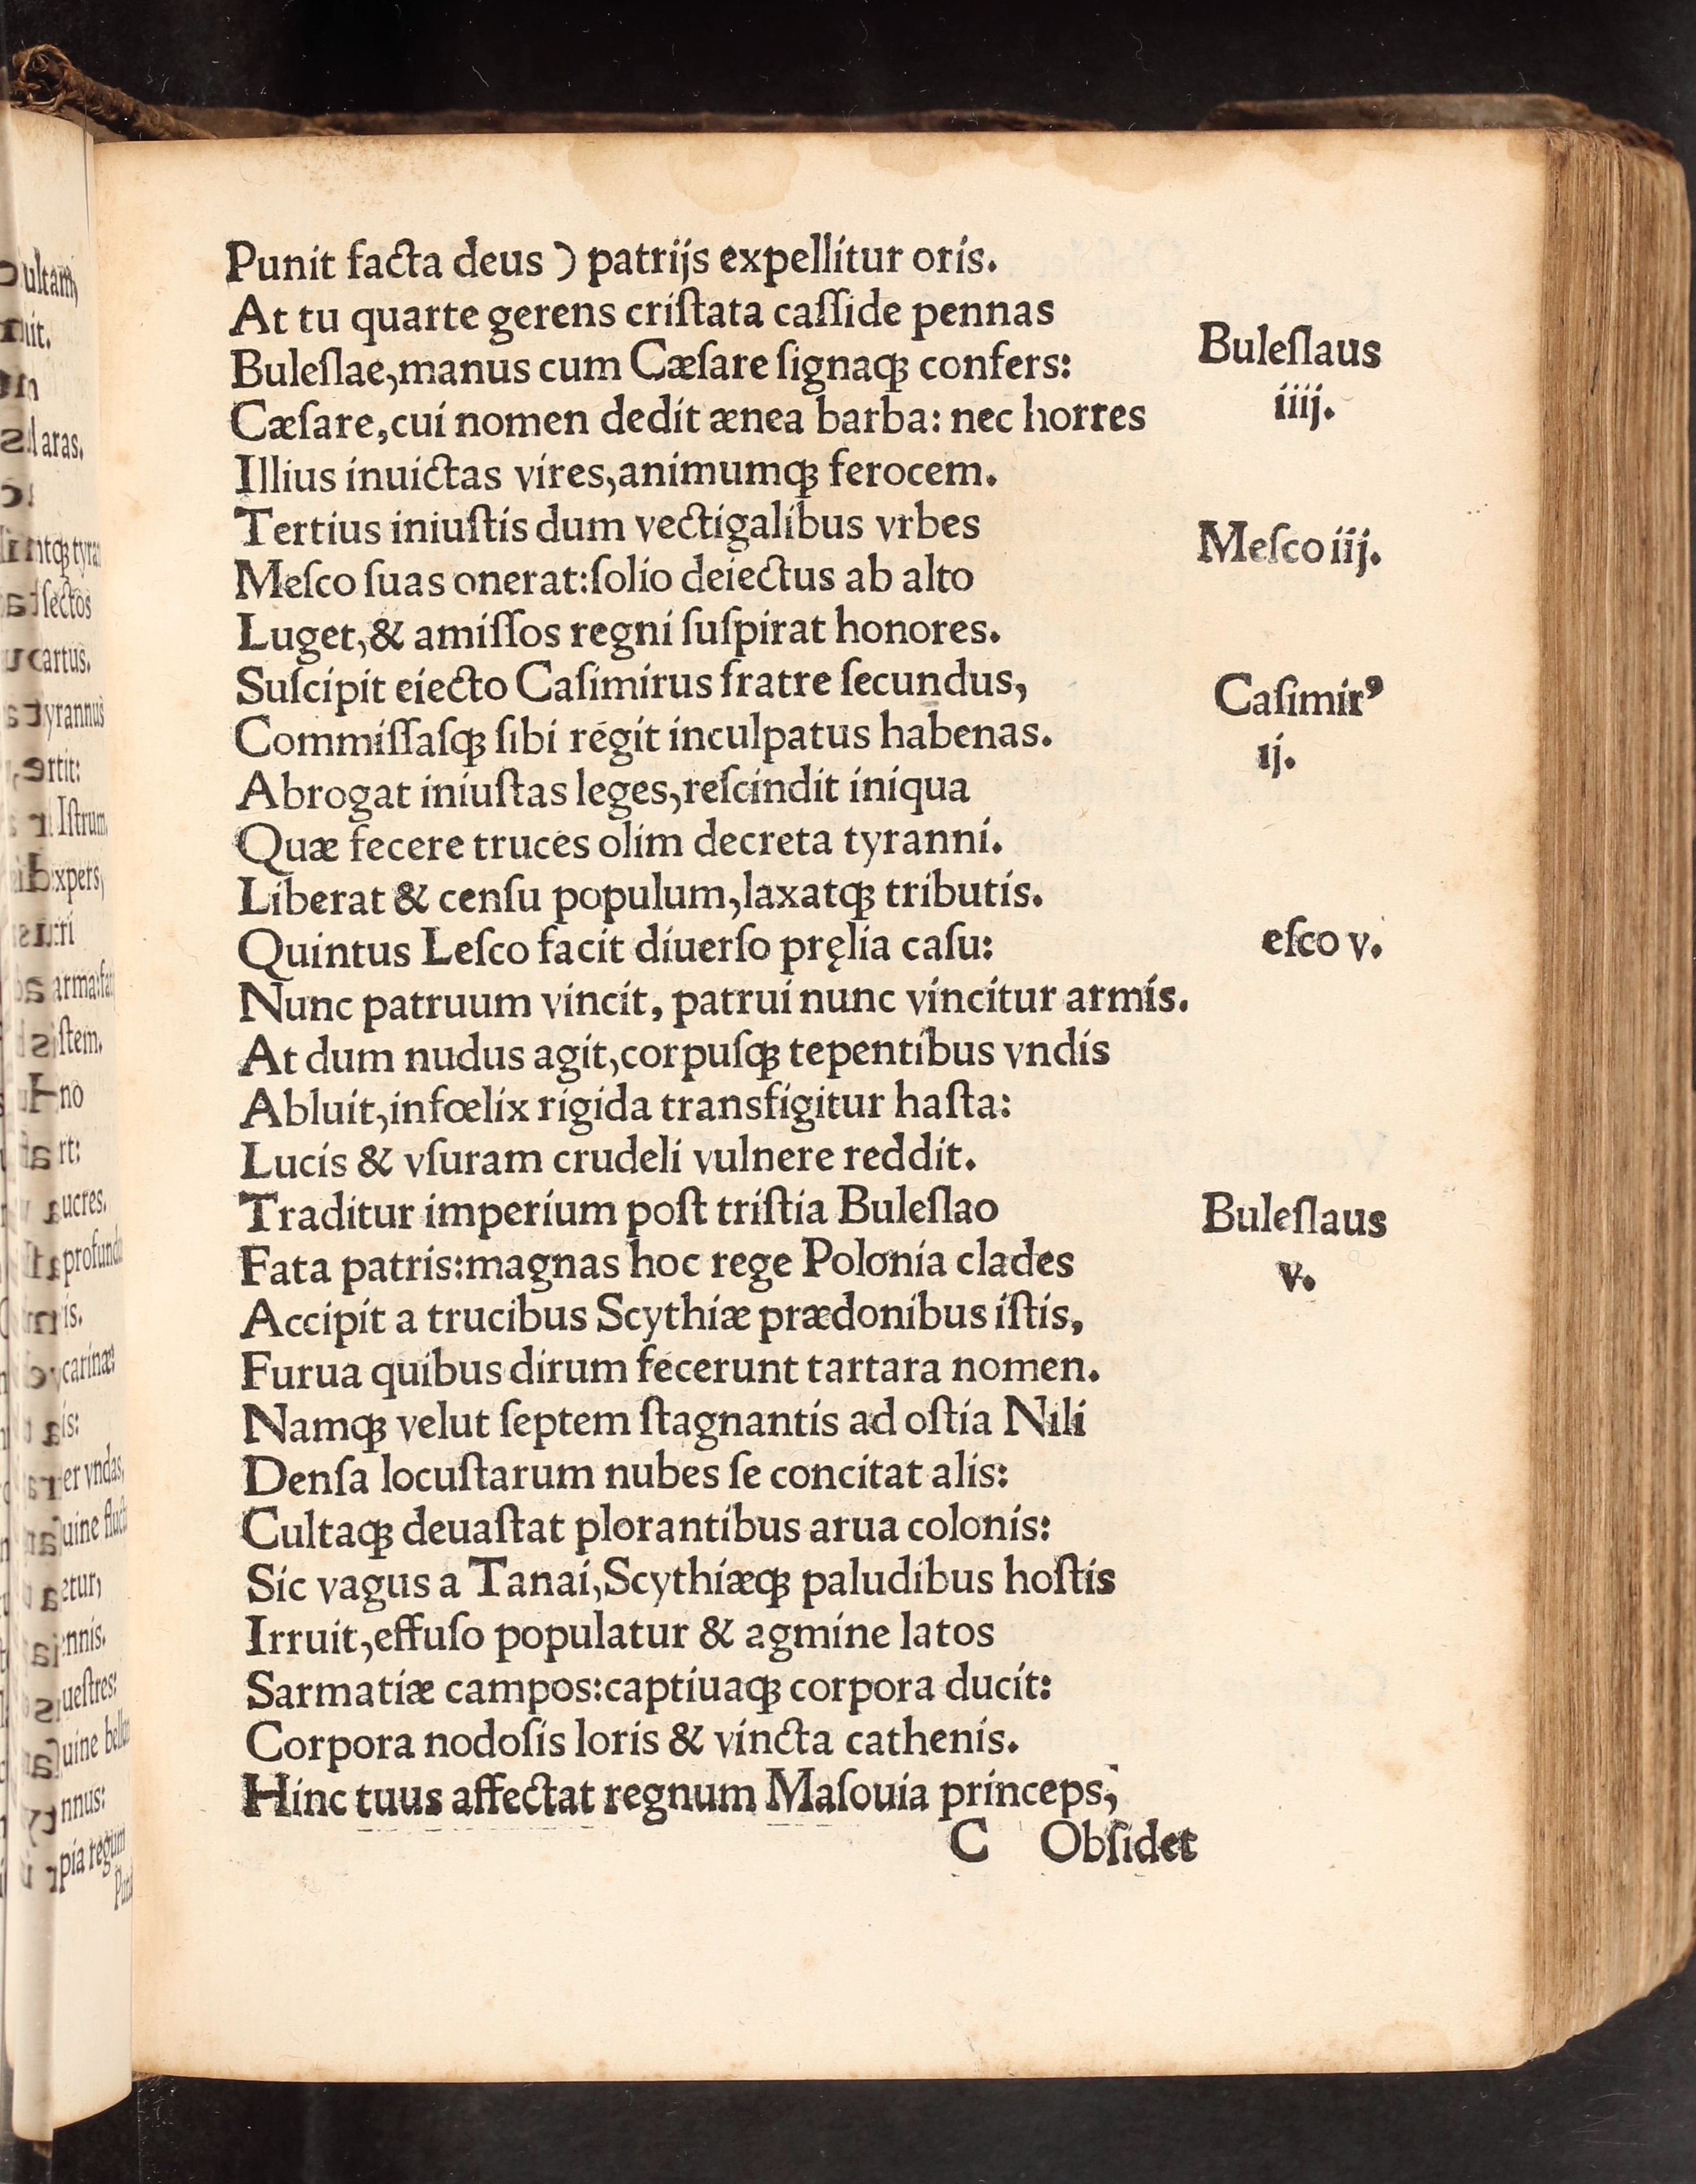 Punit facta deus ) patrijs expellitur oris.
At tu quarte gerens criſtata caſſide pennas
Buleſlaus
Buleſlae,manus cum Cæſare ſignaqꝫ confers:
iiij.
Cæſare,cui nomen dedit ænea barba: nec horres
Illius inuictas vires,animumqꝫ ferocem.
Tertius iniuſtis dum vectigalibus vrbes
Meſco iij.
Meſco ſuas onerat:ſolio deiectus ab alto
Luget,& amiſſos regni ſuſpirat honores.
Suſcipit eiecto Caſimirus fratre ſecundus,
Caſimirꝰ
Commiſſaſqꝫ ſibi regit inculpatus habenas.
ij.
Abrogat iniuſtas leges,reſcindit iniqua
Quæ fecere truces olim decreta tyranni.
Liberat & cenſu populum,laxatqꝫ tributis.
Quintus Leſco facit diuerſo pręlia caſu:
eſco v.
Nunc patruum vincit, patrui nunc vincitur armis.
At dum nudus agit,corpuſqꝫ tepentibus vndis
Abluit,infœlix rigida transfigitur haſta:
Lucis & vſuram crudeli vulnere reddit.
Traditur imperium poſt triſtia Buleſlao
Buleſlaus
Fata patris:magnas hoc rege Polonia clades
v.
Accipit a trucibus Scythiæ prædonibus iſtis,
Furua quibus dirum fecerunt tartara nomen.
Namqꝫ velut ſeptem ſtagnantis ad oſtia Nili
Denſa locuſtarum nubes ſe concitat alis:
Cultaqꝫ deuaſtat plorantibus arua colonis:
Sic vagus a Tanai,Scythiæqꝫ paludibus hoſtis
Irruit,effuſo populatur & agmine latos
Sarmatiæ campos:captiuaqꝫ corpora ducit:
Corpora nodoſis loris & vincta cathenis.
Hinc tuus affectat regnum Maſouia princeps,
C Obſidet